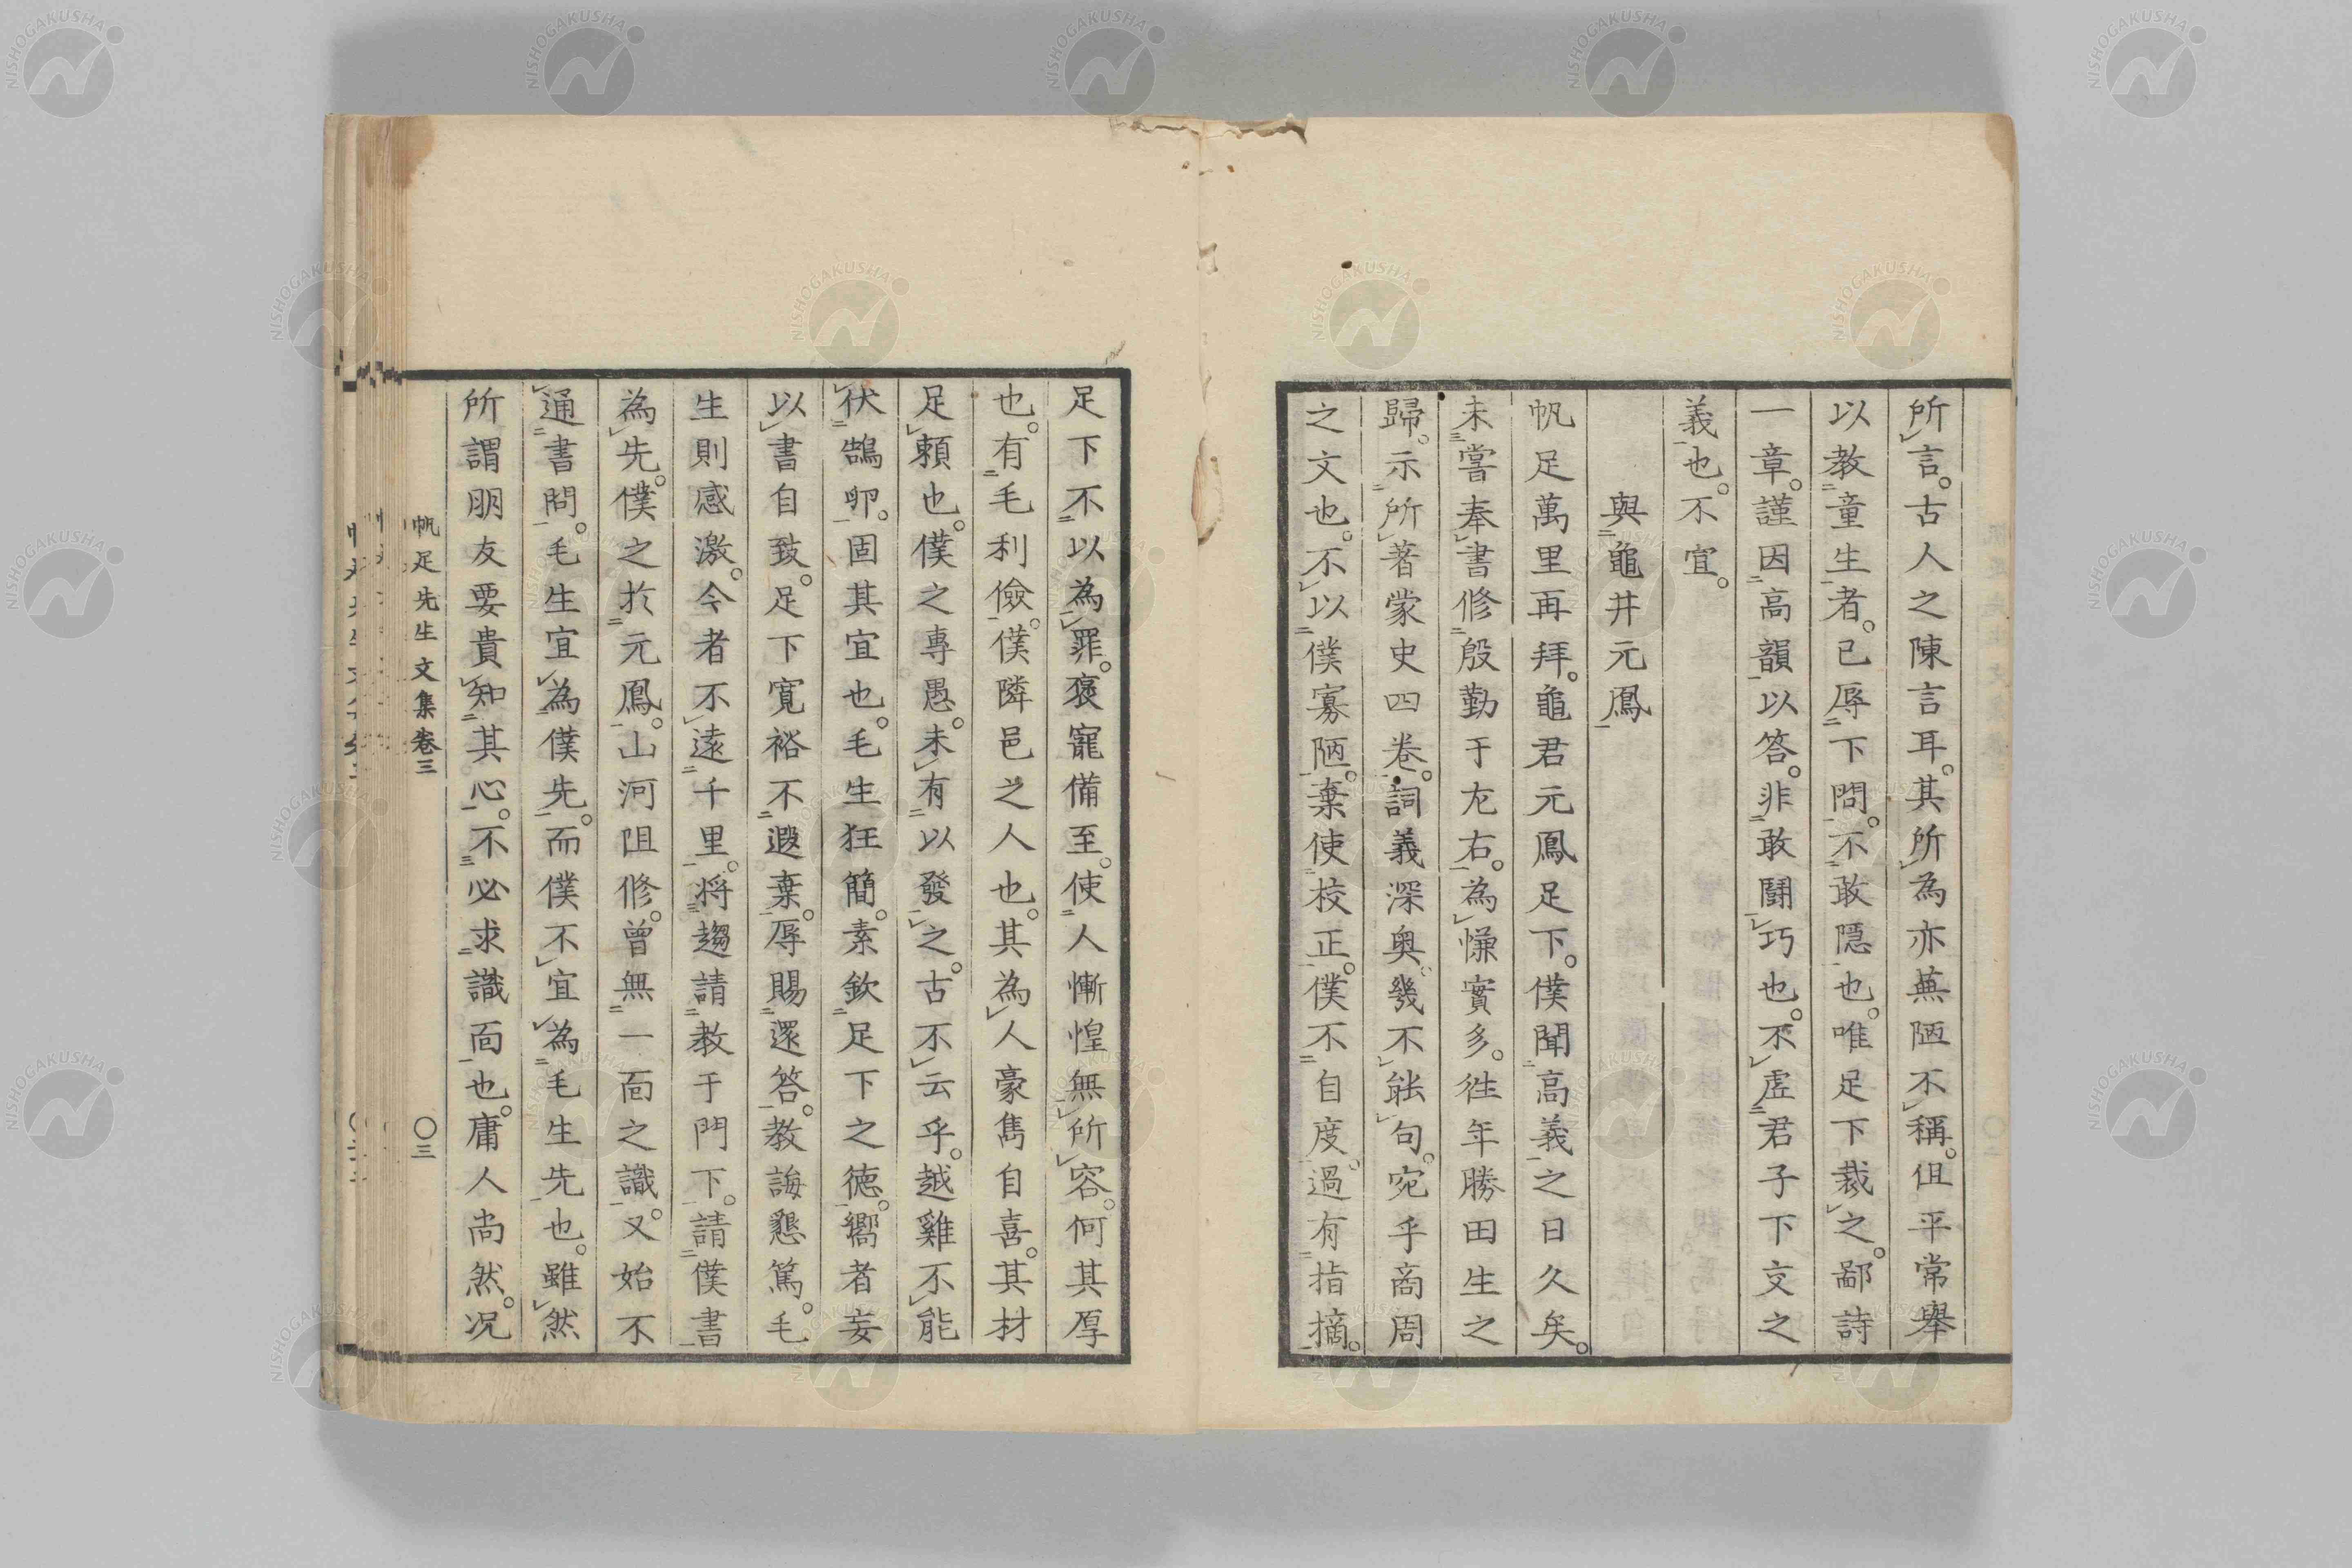 所言。古人之陳言耳。其所為亦蕪陋不稱。但平常舉
以教童生者。已辱下問。不敢隱也。唯足下裁之。鄙詩
一章。謹因高韻以答。非敢鬪巧也。不虛君子下交之
義也。不宣。
與龜井元鳳
帆足萬里再拜。龜君元鳳足下。僕聞高義之日久矣。
未嘗奉書修殷勤于左右。為慊實多。徃年勝田生之
歸。示所著蒙史四卷。詞義深奥。幾不能句。宛乎商周
之文也。不以僕寡陋。棄使校正。僕不自度。過有指摘。
足下不以為罪。褒寵備至。使人慚惶無所容。何其厚
也。有毛利儉。僕隣邑之人也。其為人豪雋自喜。其材
足頼也。僕之專愚。未有以發之。古不云乎。越雞不能
伏鵠卵。固其宜也。毛生狂簡。素欽足下之徳。嚮者妄
以書自致。足下寬裕不遐棄。辱賜還答。教誨懇篤。毛
生則感激。今者不遠千里。將趨請教于門下。請僕書
為先。僕之於元鳳。山河阻修。曾無一面之識。又始不
通書問。毛生宜為僕先。而僕不宜為毛生先也。雖然
所謂朋友要貴知其心。不必求識面也。庸人尚然。况
帆足先生文集卷三
〇三